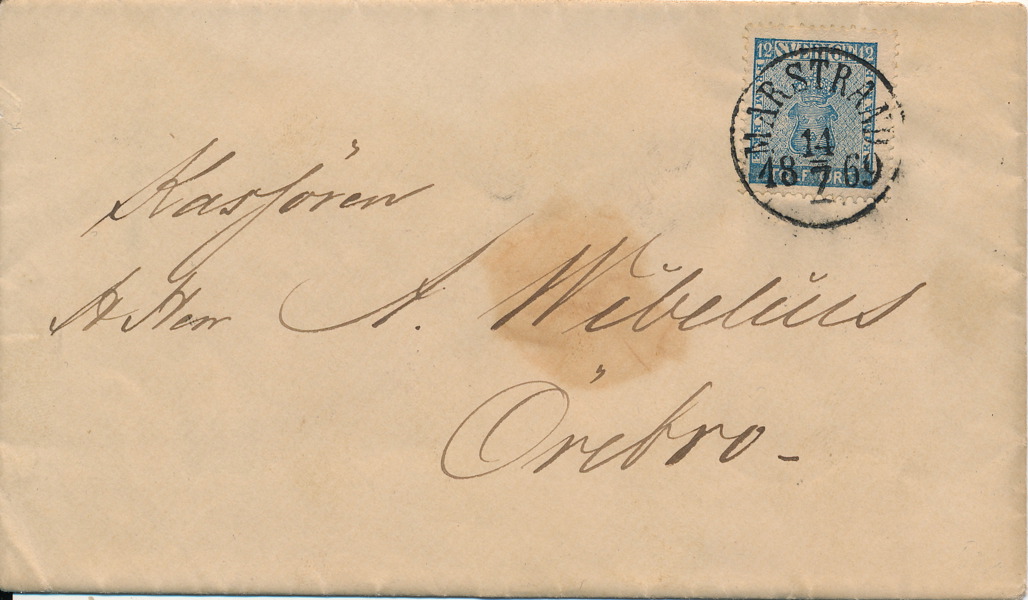 12 SVERIGE 12
MARSTRAND
14
18 7 69
Kassören
H Herr A. Wibelius
Örebro -